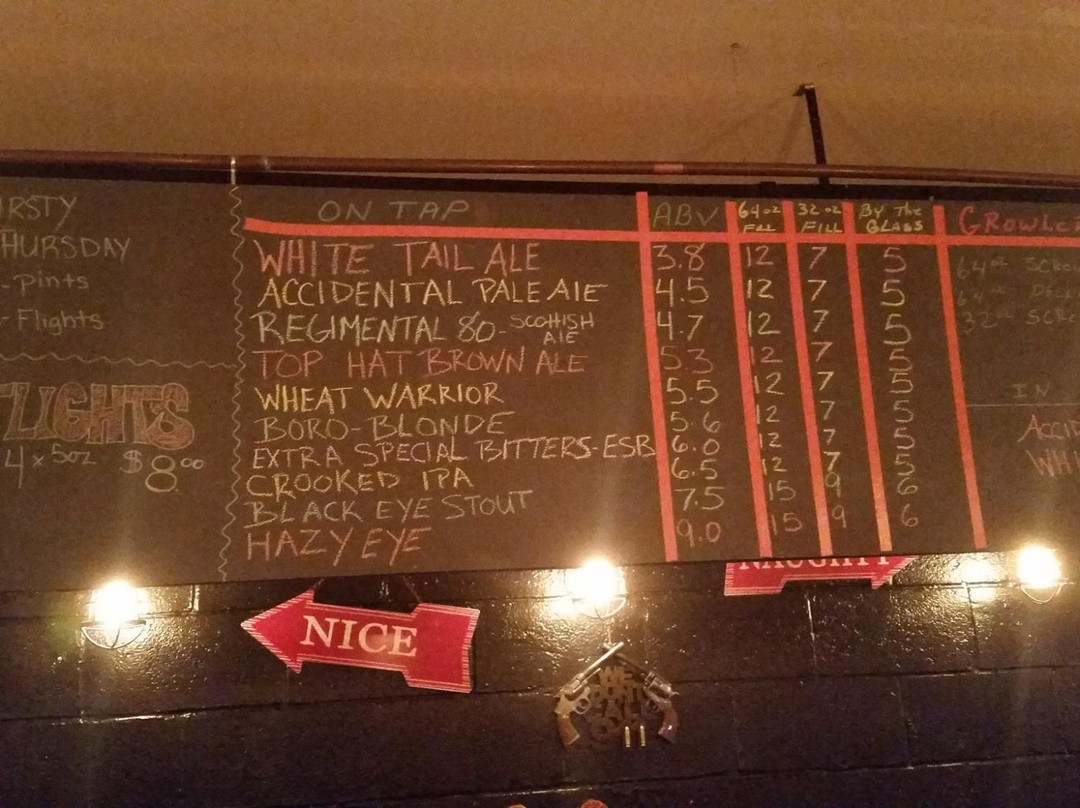 IRSTY
THURSDAY
-Pints
-Flights
FLIGHTS
4 x 5oz $8.00
ON TAP ABV 64oz FILL 32oz FILL BY The GLASS
WHITE TAIL ALE 3.8 12 7 5
ACCIDENTAL PALE ALE 4.5 12 7 5
REGIMENTAL 80-SCOTTISH ALE 4.7 12 7 5
TOP HAT BROWN ALE 5.3 12 7 5
WHEAT WARRIOR 5.5 12 7 5
BORO-BLONDE 5.6 12 7 5
EXTRA SPECIAL BITTERS-ESB 6.0 12 7 5
CROOKED IPA 6.5 12 7 5
BLACK EYE STOUT 7.5 15 9 6
HAZY EYE 9.0 15 9 6
GROWLE
64oz SCRO
64oz
32oz SCR
IN
ACCID
WHI
NICE
NAUGHTY
WE DON'T